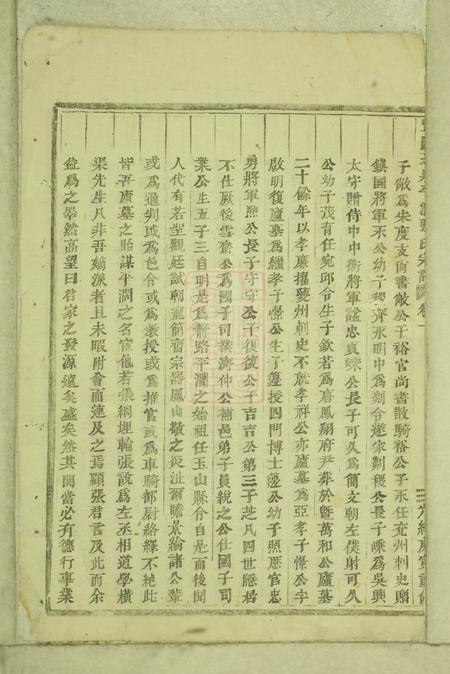 子敞為宋度支尚書敞公子裕官尚書散騎裕公子承任兗州刺史贈
鎮國將軍承公幼子稷齊永明中為剡令遂家剡稷公長子嵊為吳興
太守贈侍中中衛將軍諡忠貞嵊公長子可久為簡文朝左僕射可久
公幼子茂有任宛邱令生子欽若為唐鳳翔府尹葬於暨萬和公廬墓
二十餘年以孝廉擢夔州刺史不就孝祥公亦廬墓為亞孝子憬公字
啟明復廬墓為繼孝子憬公生了 授四門博士 公幼子照歷官忠
勇將軍照公長子守守公子復復公子吉吉公第三子芝凡四世隱居
不仕厥後雪齋公為國子司業濟仲公補邑弟子員統之公仕國子司
業公生五子三自明是為新路平潤之始祖任玉山縣令自是而後聞
人代有若聖觀廷試朝寵簡齋宗器鳳山敬之炎沚爾瞻景綸諸公輩
或為通判或為邑令或為教授或為推官或為車騎都尉絡繹不絕此
皆吾廬墓之貽謀乎閥之名宦他若張綱埋輪張說為左丞相道學橫
渠先生凡非吾嫡派者且未暇附會而連及之焉顧張君言及此而余
益為之睪然高望曰君家之發源遠矣盛矣然其間當必有德行事業